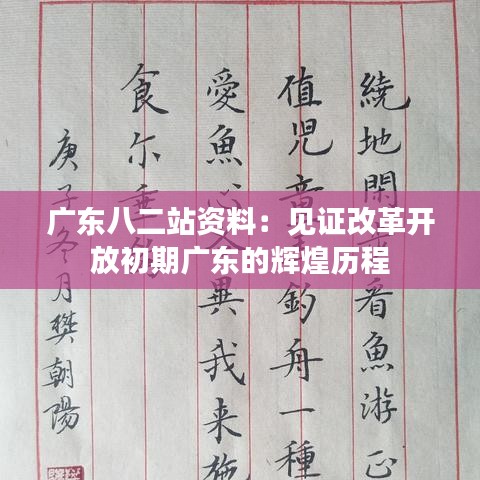 广东八二站资料：见证改革开
放初期广东的辉煌历程
繞地閒看魚游正
值児童釣舟一種
愛魚心異我来施
食尔垂
庚子冬月樊朝陽